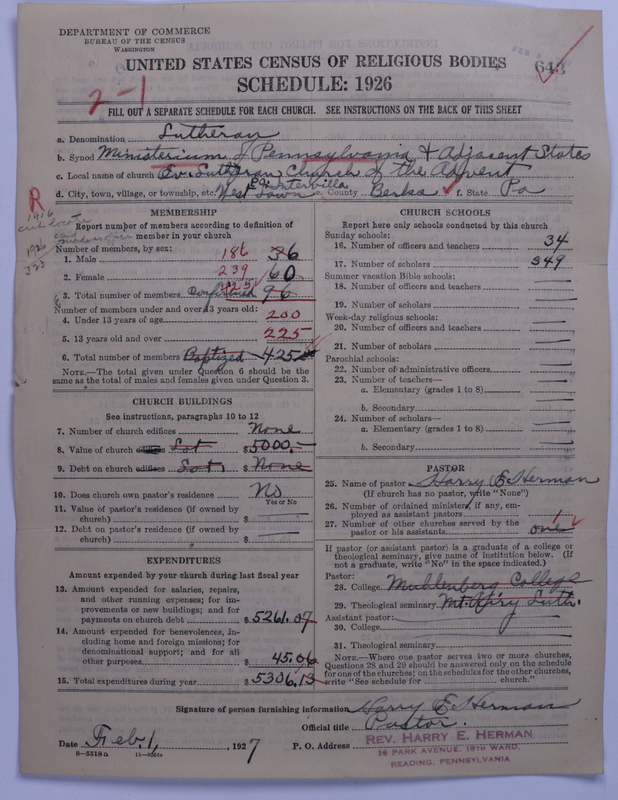 DEPARTMENT OF COMMERCE
BUREAU OF THE CENSUS
WASHINGTON
UNITED STATES CENSUS OF RELIGIOUS BODIES
643
SCHEDULE: 1926
2-1
FILL OUT A SEPARATE SCHEDULE FOR EACH CHURCH. SEE INSTRUCTIONS ON THE BACK OF THIS SHEET
a. Denomination Lutheran
b. Synod Ministerium of Pennsylvania & Adjacent States
c. Local name of church Ev. Lutheran Church of the Advent
d. City, town, village, or township, etc. West Lawn e. County Berks f. State Pa
R
1916
1926
MEMBERSHIP
Report number of members according to definition of member in your church
Number of members, by sex:
1. Male 186 36
2. Female 239 60
3. Total number of members Confirmed 425 96
Number of members under and over 13 years old:
4. Under 13 years of age 200
5. 13 years old and over 225
6. Total number of members Baptized 425
NOTE.—The total given under Question 6 should be the same as the total of males and females given under Question 3.
CHURCH BUILDINGS
See instructions, paragraphs 10 to 12
7. Number of church edifices None
8. Value of church edifices Lot $5000.—
9. Debt on church edifices Lot $ None
10. Does church own pastor's residence No
Yes or No
11. Value of pastor's residence (if owned by church) $ —
12. Debt on pastor's residence (if owned by church) $ —
EXPENDITURES
Amount expended by your church during last fiscal year
13. Amount expended for salaries, repairs, and other running expenses; for improvements or new buildings; and for payments on church debt $5261.07
14. Amount expended for benevolences, including home and foreign missions; for denominational support; and for all other purposes $45.06
15. Total expenditures during year $5306.13
CHURCH SCHOOLS
Report here only schools conducted by this church
Sunday schools:
16. Number of officers and teachers 34
17. Number of scholars 349
Summer vacation Bible schools:
18. Number of officers and teachers —
19. Number of scholars —
Week-day religious schools:
20. Number of officers and teachers —
21. Number of scholars —
Parochial schools:
22. Number of administrative officers —
23. Number of teachers—
a. Elementary (grades 1 to 8) —
b. Secondary —
24. Number of scholars—
a. Elementary (grades 1 to 8) —
b. Secondary —
PASTOR
25. Name of pastor Harry E. Herman
(If church has no pastor, write "None")
26. Number of ordained ministers, if any, employed as assistant pastors
27. Number of other churches served by the pastor or his assistants one 1
If pastor (or assistant pastor) is a graduate of a college or theological seminary, give name of institution below. (If not a graduate, write "No" in the space indicated.)
Pastor:
28. College Muhlenberg College
29. Theological seminary Mt. Airy Luth.
Assistant pastor:
30. College
31. Theological seminary
NOTE.—Where one pastor serves two or more churches, Questions 28 and 29 should be answered only on the schedule for one of the churches; on the schedules for the other churches, write "See schedule for church."
Signature of person furnishing information Harry E. Herman
Official title Pastor.
Date Feb 1, 1927 P. O. Address REV. HARRY E. HERMAN
16 PARK AVENUE, 18TH WARD.
READING, PENNSYLVANIA
8—5518a